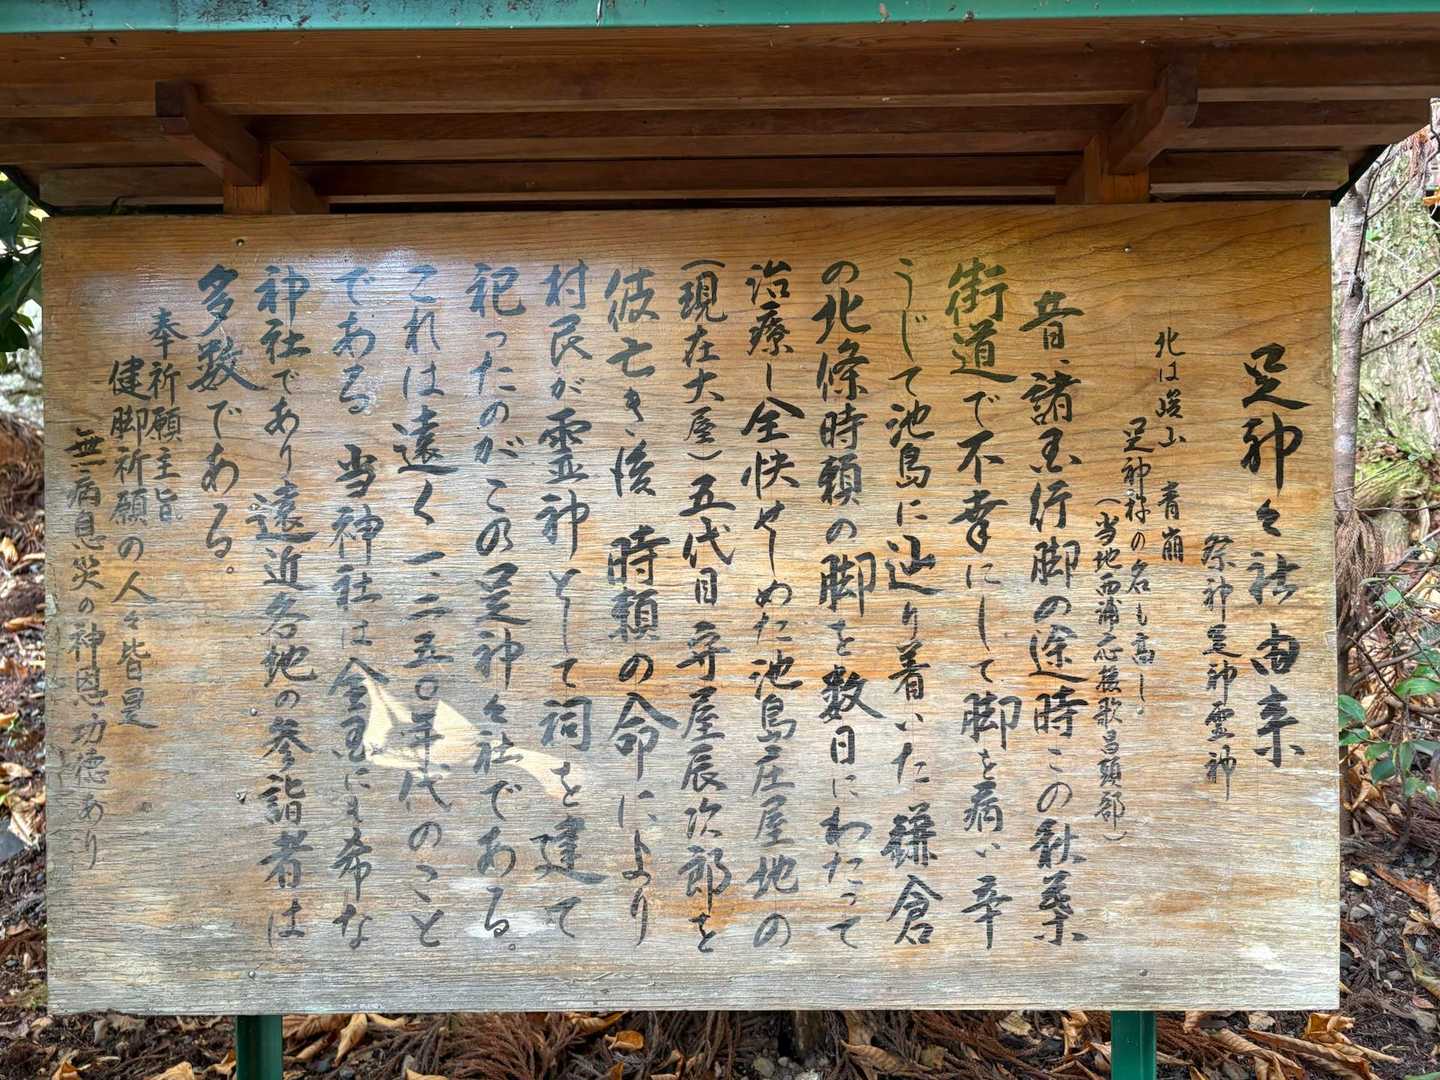 足神々社由来
祭神足神霊神
北は峻山 青崩
足神神の名も高し。
(当地西浦 歌 部)
昔、諸国行脚の途時この秋葉
街道で不幸にして脚を病い辛
うじて池島に辿り着いた鎌倉
の北條時頼の脚を数日にわたって
治療し全快せしめた池島庄屋地の
(現在大屋)五代目守屋辰次郎を
彼亡き後 時頼の命により
村民が霊神として祠を建て
祀ったのがこの足神々社である。
これは遠く一、二五〇年代のこと
である 当神社は全国にも希な
神社であり遠近各地の参詣者は
多数である。
奉祈願主旨
健脚祈願の人々皆是
無病息災の神恩功徳あり